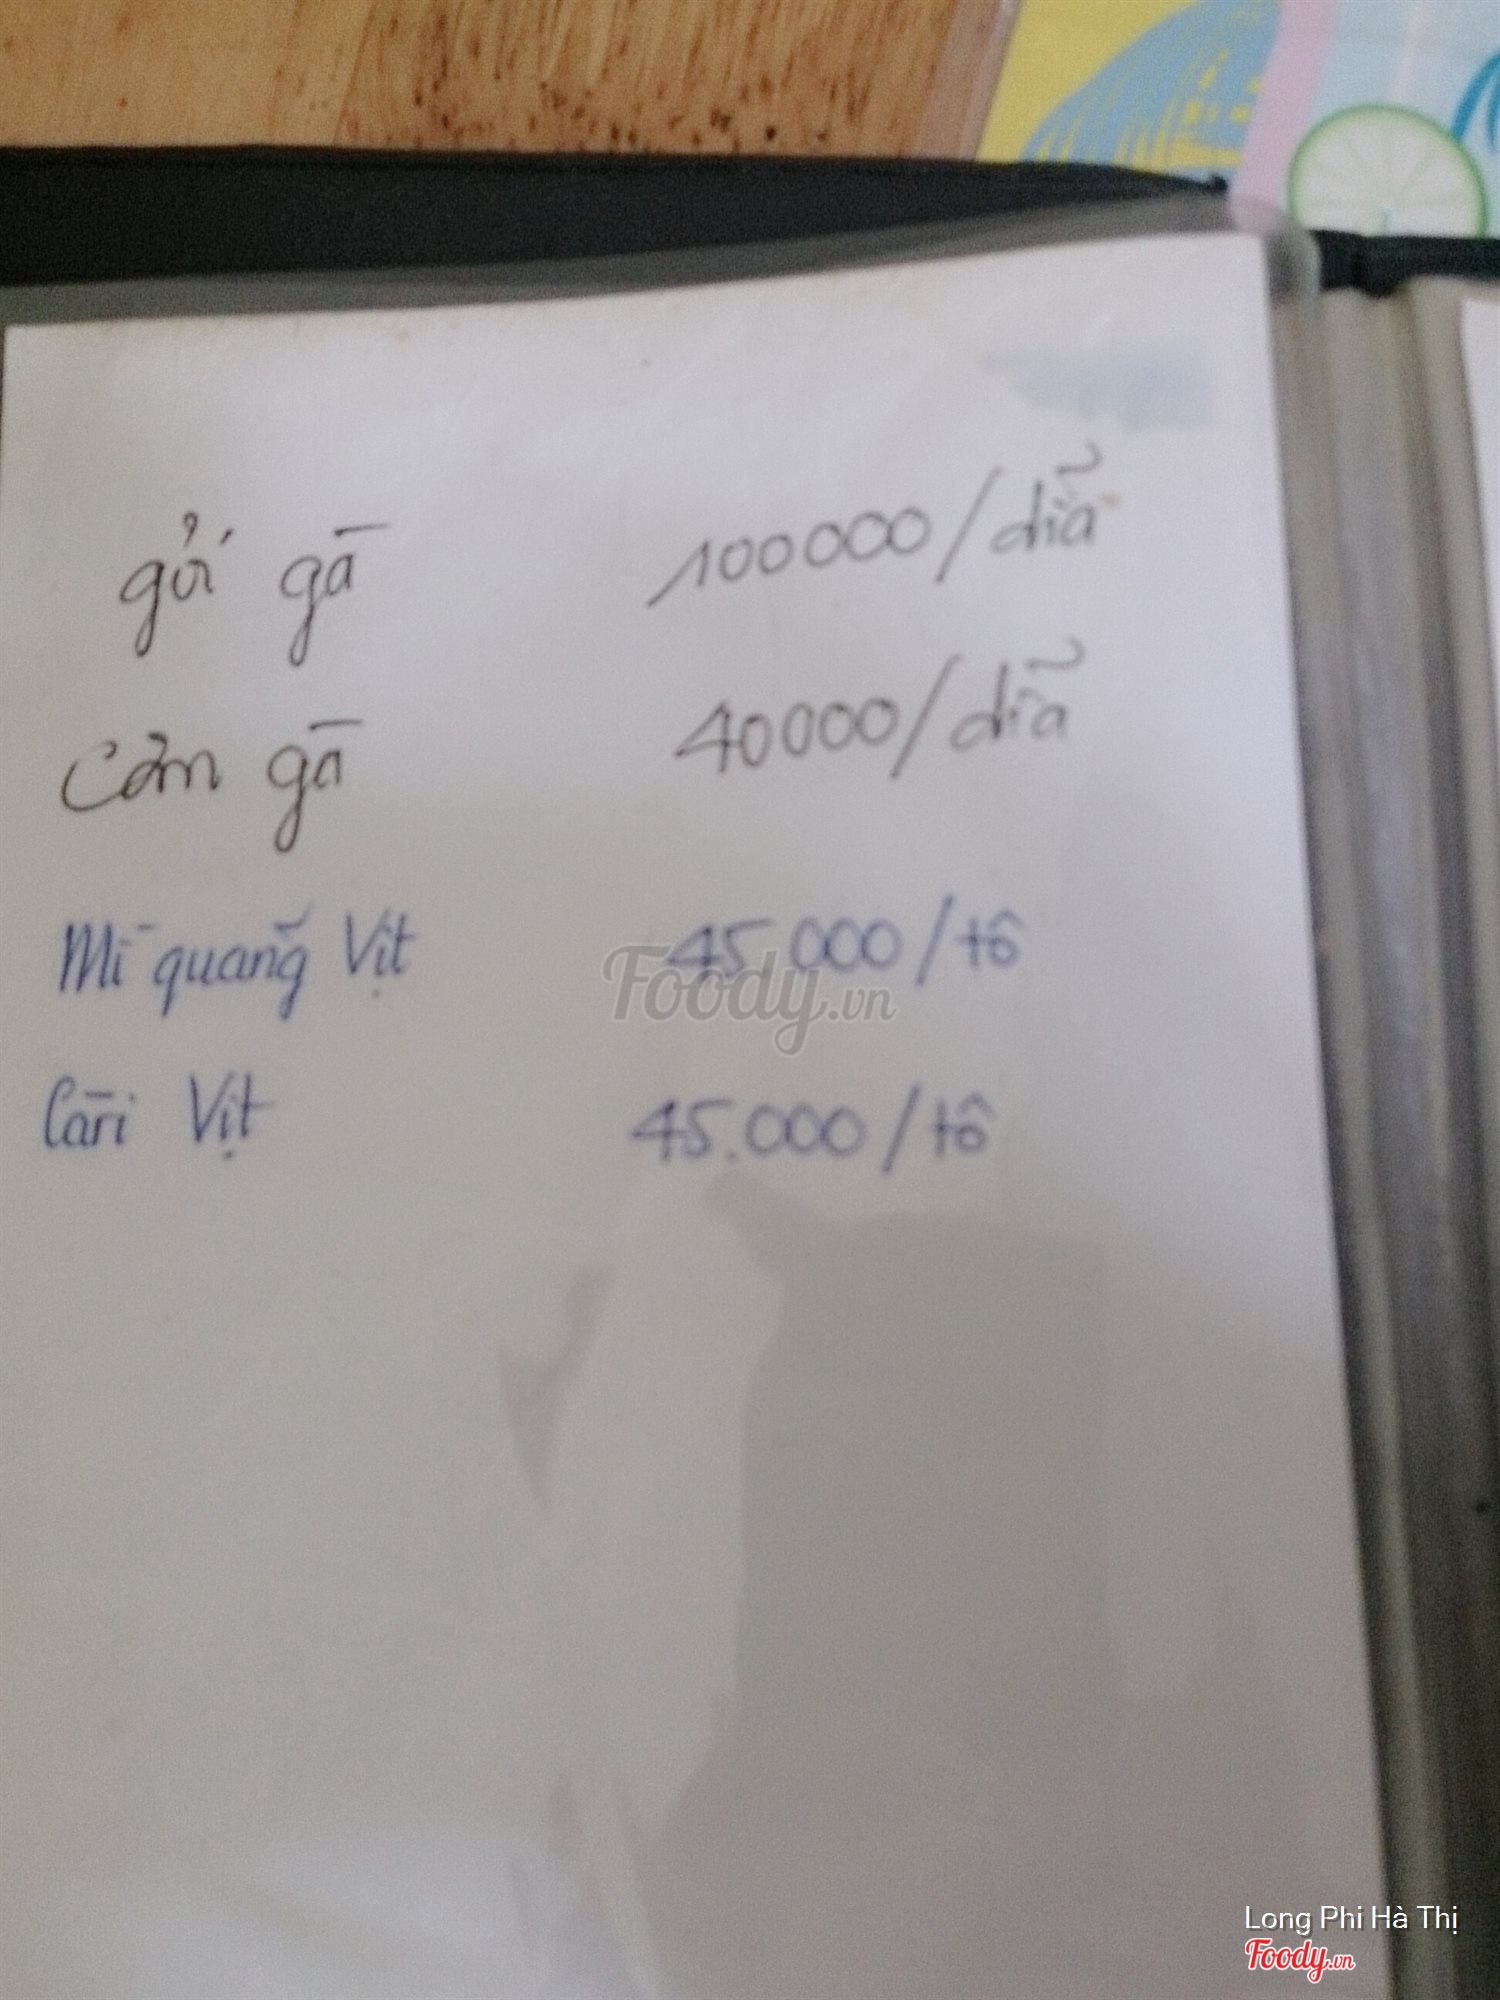 gỏi gà 100000/dĩa
Cơm gà 40000/dĩa
Mì quảng Vịt 45.000/tô
Càri Vịt 45.000/tô
Foody.vn
Long Phi Hà Thị
Foody.vn